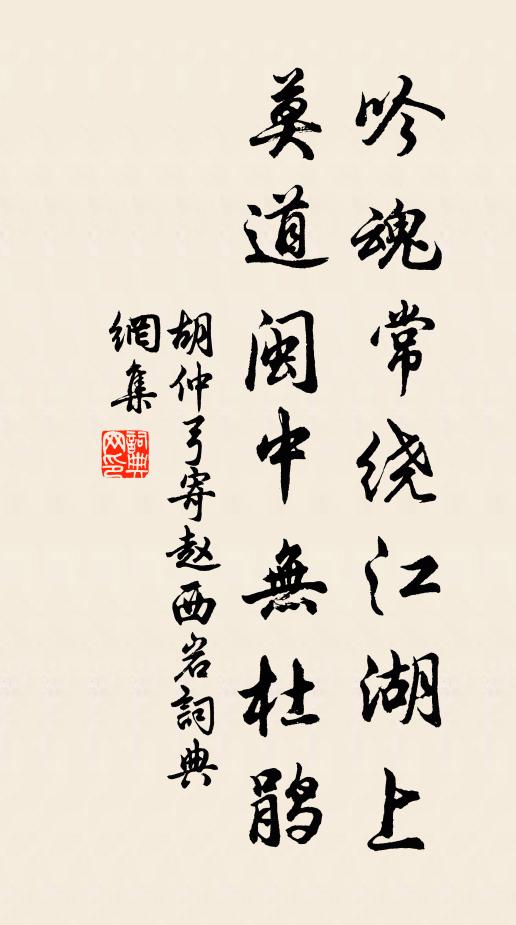 吟魂常绕江湖上
莫道闽中無杜鹃
胡仲弓寄赵西岩詞典
網集
詞典
网印